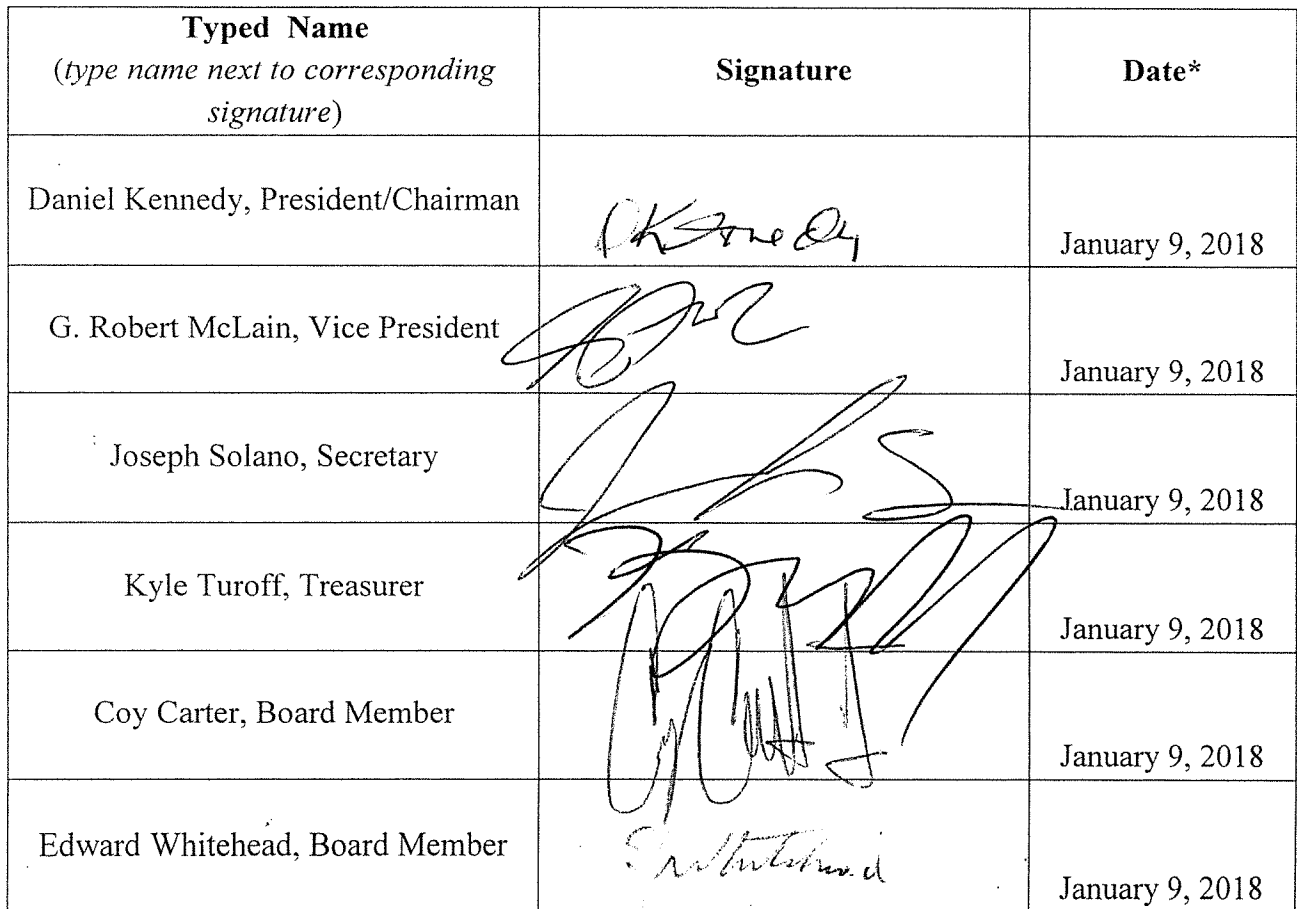 Typed Name
(type name next to corresponding
signature)
Signature
Date*
Daniel Kennedy, President/Chairman
DKennedy
January 9, 2018
G. Robert McLain, Vice President
January 9, 2018
Joseph Solano, Secretary
January 9, 2018
Kyle Turoff, Treasurer
January 9, 2018
Coy Carter, Board Member
January 9, 2018
Edward Whitehead, Board Member
EWhitehead
January 9, 2018